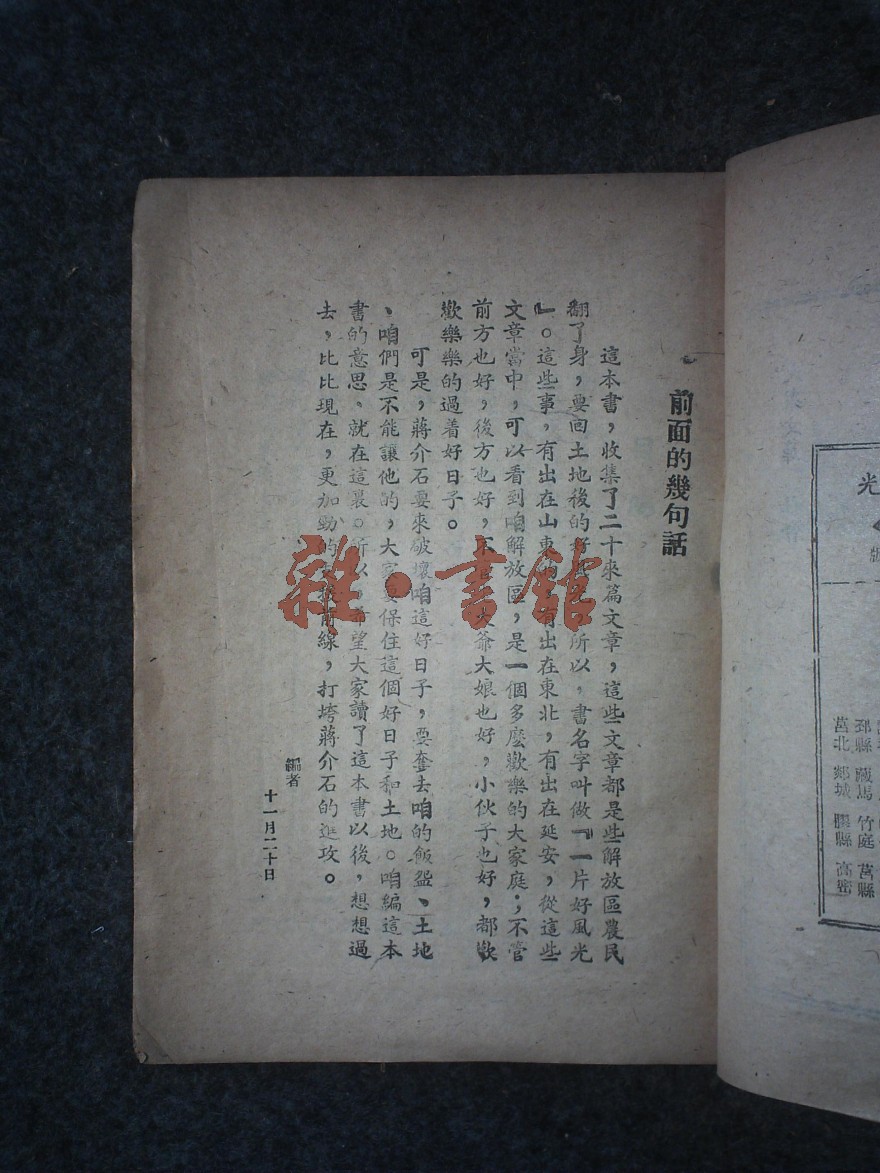 前面的幾句話
這本書，收集了二十來篇文章，這些文章都是些解放區農民
翻了身，要回土地後的好 所以，書名字叫做『一片好風光
』。這些事，有出在山東 有出在東北，有出在延安，從這些
文章當中，可以看到咱解放區，是一個多麽歡樂的大家庭；不管
前方也好，後方也好，不 大爺大娘也好，小伙子也好，都歡
歡樂樂的過着好日子。
可是，蔣介石要來破壞咱這好日子，要奪去咱的飯盌、土地
、咱們是不能讓他的，大家要保住這個好日子和土地。咱編這本
書的意思、就在這裏。所以 希望大家讀了這本書以後，想想過
去，比比現在，更加勁的 前線，打垮蔣介石的進攻。
編者
十一月二十日
雜·書館
光
莒縣
竹庭
高密
郯縣
藏馬
膠縣
莒北
郯城